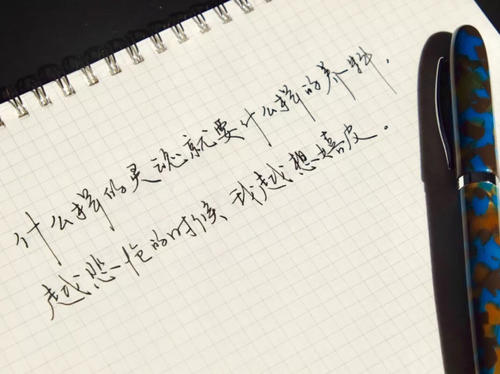 什么样的灵魂就要什么样的养料，
越悲怆的时候我越想嬉皮。